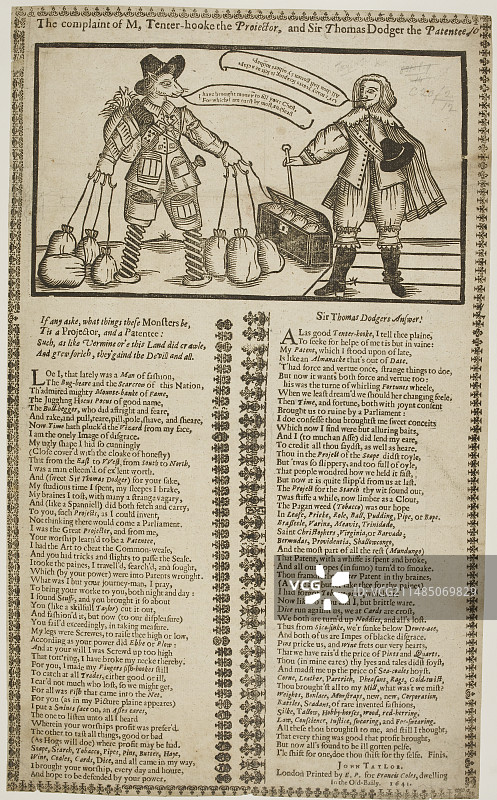 The complaint of M, Tenter-hooke the Projector, and Sir Thomas Dodger the Patentee.
I have brought money to fill your Chest,
For which I am curst by most and least.
If any aske, what things these Monsters be,
Tis a Projector, and a Patentee:
Such, as like Vermine o're this Land did crawle,
And grew so rich, they gain'd the Devill and all.
LOe I, that lately was a Man of fashion,
The Bug-beare and the Scarcrow of this Nation,
Th'admired mighty Mounte-banke of Fame,
The Juggling Hocus Pocus of good name;
The Bull-begger, who did affright and feare,
And rake, and pull, teare, pill, pole, shave, and sheare,
Now Time hath pluck'd the Vizard from my face,
I am the onely Image of disgrace.
My ugly shape I hid so cunningly
(Close cover'd with the cloake of honesty)
That from the East to West, from South to North,
I was a man esteem'd of ex'lent worth.
And (sweet Sir Thomas Dodger) for your sake,
My studious time I spent, my sleepes I brake,
My braines I tost, with many a strange vagary,
And (like a Spaniell) did both fetch and carry,
To you, such Projects, as I could invent,
Not thinking there would come a Parliament.
I was the Great Projector, and from me,
Your worship learn'd to be a Patentee,
I had the Art to cheat the Common-weale,
And you had tricks and slights to passe the Seale.
I tooke the paines, I travell'd, search'd, and sought,
Which (by your power) were into Patents wrought.
What was I but your journey-man, I pray,
To bring your worke to you, both night and day:
I found Stuffe, and you brought it so about
You (like a skilfull Taylor) cut it out,
And fashion'd it, but now (to our displeasure)
You fail'd exceedingly, in taking measure.
My legs were Screwes, to raise thee high or low,
According as your power did Ebbe or Flow.
And at your will I was Screw'd up too high
That tott'ring, I have broke my necke thereby.
For you, I made my Fingers fish-hookes still
To catch at all Trades, either good or ill,
I car'd not much who lost, so we might get,
For all was Fish that came into the Net.
For you (as in my Picture plaine appeares)
I put a Swines face on, an Asses eares,
The one to listen unto all I heard
Wherein your worships profit was prefer'd.
The other to tast all things, good or bad
(As Hogs will doe) where profit may be had.
Soape, Starch, Tobacco, Pipes, Pens, Butter, Hops,
Wine, Coales, Cards, Dice, and all came in my way,
I brought your worship, every day and houre,
And hope to be defended by your power.
Sir Thomas Dodgers Answer.
ALas good Tenter-hooke, I tell thee plaine,
To seeke for helpe of me tis but in vaine:
My Patent, which I stood upon of late,
Is like an Almanacke that's out of Date.
'T had force and vertue once, strange things to doe,
But now it wants both force and vertue too:
This was the turne of whirling Fortunes wheele,
When we least dream'd we should her changing feele.
Then Time, and fortune, both with joynt consent
Brought us to ruine by a Parliament;
I doe confesse thou brought'st me sweet conceits
Which now I find were but alluring baits,
And I (too much an Asse) did lend my eare,
To credit all thou saydst, as well as heare.
Thou in the Project of the Soape didst toyle,
But 'twas so slippery, and too full of oyle,
That people wondred how we held it fast,
But now it is quite slipp'd from us at last.
The Project for the Starch thy wit found out,
'Twas stiffe a while, now limber as a Clout,
The Pagan weed (Tobacco) was our hope
In Leafe, Pricke, Role, Ball, Pudding, Pipe, or Rope.
Brasseele, Varina, Meavis, Trinidado,
Saint Christophers, Virginia, or Barvado;
Bermudas, Providentia, Shallowcongo,
And the most part of all the rest (Mundungo)
That Patent, with a whiffe is spent and broke,
And all our hopes (in fumo) turn'd to smoake.
Dice run against us, we at Cards are crost,
We both are turn'd up Noddies, and all's lost.
Thus from Sice-sinke, we'r sunke below Dewce-ace,
And both of us are Impes of blacke disgrace.
Pins pricke us, and Wine frets our very hearts,
That we have rais'd the price of Pints and Quarts.
Thou (in mine eares) thy lyes and tales didst foyst,
And mad'st me up the price of Sea-coales hoyst.
Corne, Leather, Partrich, Pheasant, Rags, Gold-twist,
Thou brought'st all to my Mill, what was't we mist?
Weights, Bon lace, Mowstraps, new, new, Corporation,
Rattles, Seadans, of rare invented fashion,
Silke, Tallow, Hobby-horses, Wood, red-herring,
Law, Conscience, Justice, Swearing, and For-swearing.
All these thou broughtst to me, and still I thought,
That every thing was good that profit brought,
But now all's found to be ill gotten pelfe,
I'le shift for one, doe thou shift for thy selfe. Finis.
JOHN TAYLOR.
London Printed by E. P. for Francis Coles, dwelling
in the Old-Baily. 1641.
VCG
ID: VCG211485069829